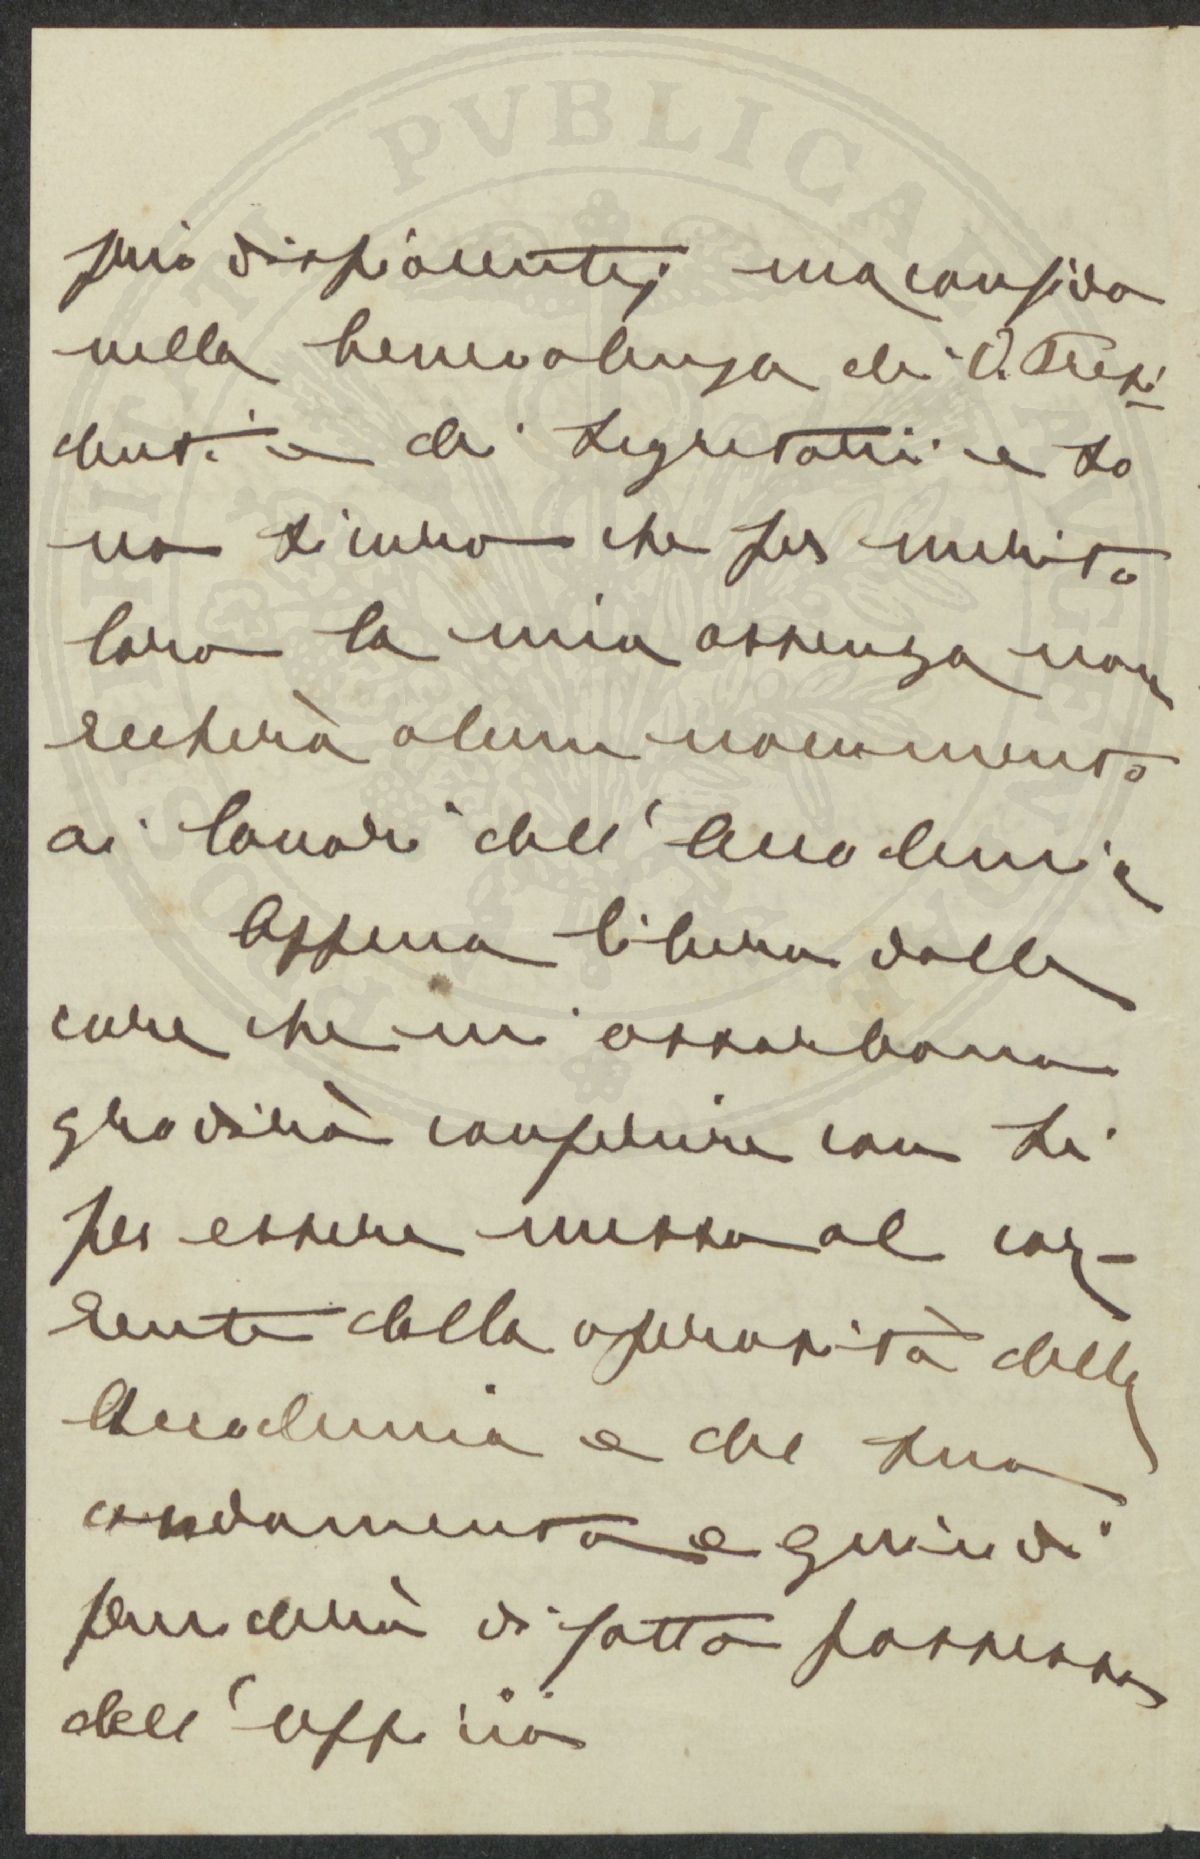 PVBLICAE
più dispiacente; ma confido
nella benevolenza dei V. Presi
denti e dei Segretarii e so
no sicuro che per merito
loro la mia assenza non
recherà alcun nocumento
ai lavori dell'Accademia
Appena libero dalle
cure che mi assorbono
gradirò conferire con Lei
per essere messo al cor-
rente della operosità della
Accademia e del suo
andamento e quindi
prenderò di fatto possesso
dell'Ufficio